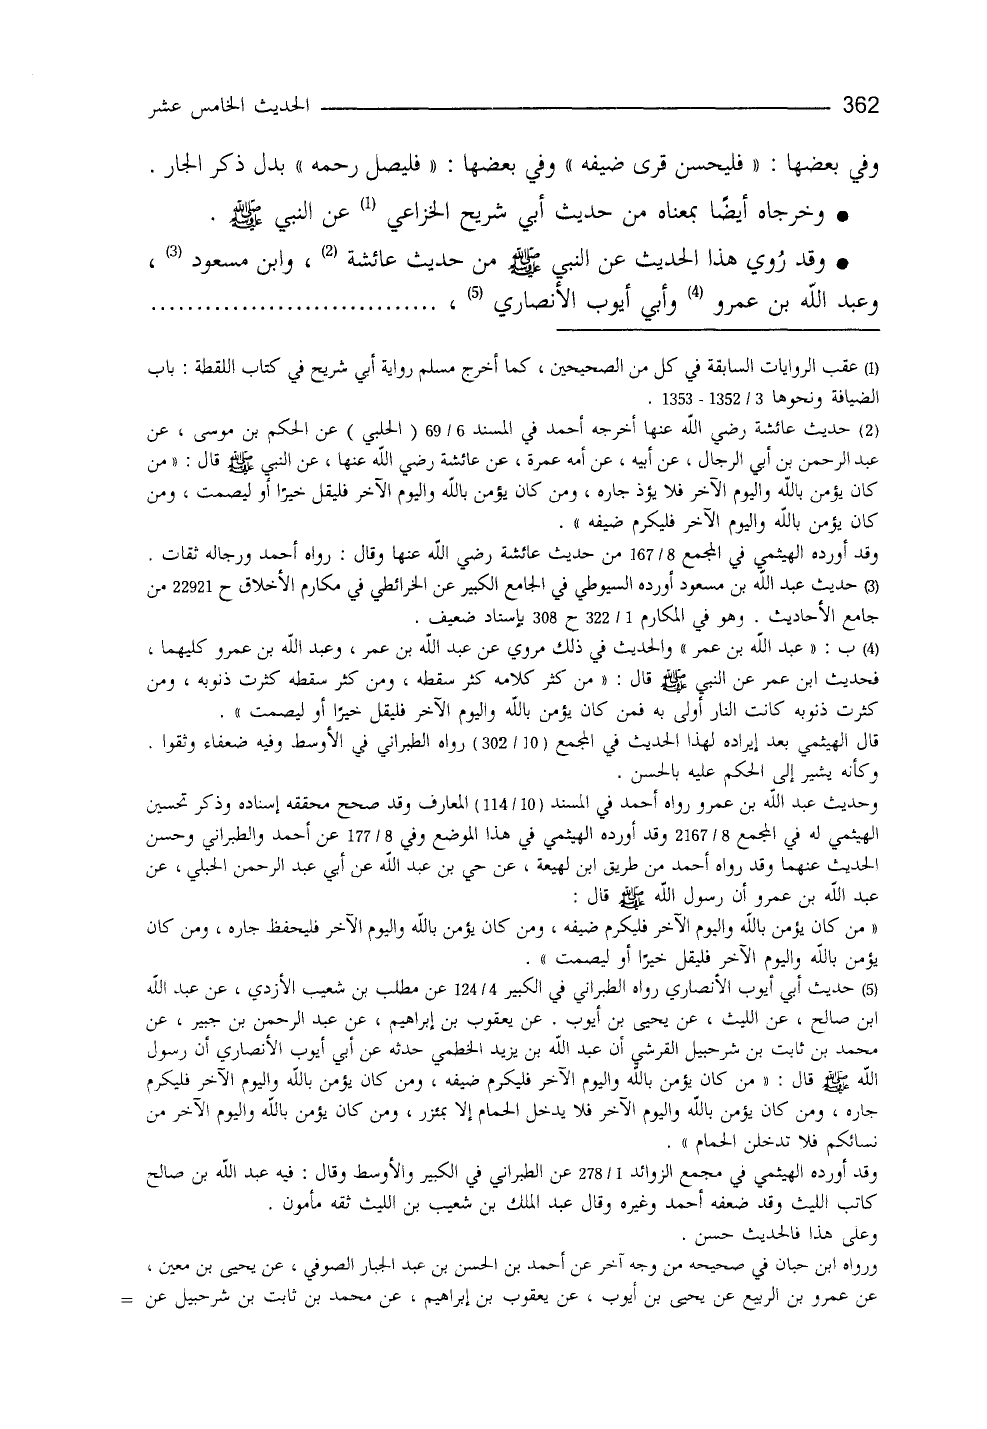 362 الحديث الخامس عشر
وفي بعضها : « فليحسن قرى ضيفه » وفي بعضها : « فليصل رحمه » بدل ذكر الجار .
● وخرجاه أيضًا بمعناه من حديث أبي شريح الخزاعي (1) عن النبي ﷺ .
● وقد رُوي هذا الحديث عن النبي ﷺ من حديث عائشة (2) ، وابن مسعود (3) ،
وعبد اللَّه بن عمرو (4) وأبي أيوب الأنصاري (5) ، ................................
(1) عقب الروايات السابقة في كل من الصحيحين ، كما أخرج مسلم رواية أبي شريح في كتاب اللقطة : باب
الضيافة ونحوها 3 / 1352 - 1353 .
(2) حديث عائشة رضي اللَّه عنها أخرجه أحمد في المسند 6 / 69 ( الحلبي ) عن الحكم بن موسى ، عن
عبد الرحمن بن أبي الرجال ، عن أبيه ، عن أمه عمرة ، عن عائشة رضي اللَّه عنها ، عن النبي ﷺ قال : « من
كان يؤمن باللَّه واليوم الآخر فلا يؤذ جاره ، ومن كان يؤمن باللَّه واليوم الآخر فليقل خيرًا أو ليصمت ، ومن
كان يؤمن باللَّه واليوم الآخر فليكرم ضيفه » .
وقد أورده الهيثمي في المجمع 8 / 167 من حديث عائشة رضي اللَّه عنها وقال : رواه أحمد ورجاله ثقات .
(3) حديث عبد اللَّه بن مسعود أورده السيوطي في الجامع الكبير عن الخرائطي في مكارم الأخلاق ح 22921 من
جامع الأحاديث . وهو في المكارم 1 / 322 ح 308 بإسناد ضعيف .
(4) ب : « عبد اللَّه بن عمر » والحديث في ذلك مروي عن عبد اللَّه بن عمر ، وعبد اللَّه بن عمرو كليهما ،
فحديث ابن عمر عن النبي ﷺ قال : « من كثر كلامه كثر سقطه ، ومن كثر سقطه كثرت ذنوبه ، ومن
كثرت ذنوبه كانت النار أولى به فمن كان يؤمن باللَّه واليوم الآخر فليقل خيرًا أو ليصمت » .
قال الهيثمي بعد إيراده لهذا الحديث في المجمع ( 10 / 302 ) رواه الطبراني في الأوسط وفيه ضعفاء وثقوا .
وكأنه يشير إلى الحكم عليه بالحسن .
وحديث عبد اللَّه بن عمرو رواه أحمد في المسند ( 10 / 114 ) المعارف وقد صحح محققه إسناده وذكر تحسين
الهيثمي له في المجمع 8 / 2167 وقد أورده الهيثمي في هذا الموضع وفي 8 / 177 عن أحمد والطبراني وحسن
الحديث عنهما وقد رواه أحمد من طريق ابن لهيعة ، عن حي بن عبد اللَّه عن أبي عبد الرحمن الحبلي ، عن
عبد اللَّه بن عمرو أن رسول اللَّه ﷺ قال :
« من كان يؤمن باللَّه واليوم الآخر فليكرم ضيفه ، ومن كان يؤمن باللَّه واليوم الآخر فليحفظ جاره ، ومن كان
يؤمن باللَّه واليوم الآخر فليقل خيرًا أو ليصمت » .
(5) حديث أبي أيوب الأنصاري رواه الطبراني في الكبير 4 / 124 عن مطلب بن شعيب الأزدي ، عن عبد اللَّه
ابن صالح ، عن الليث ، عن يحيى بن أيوب . عن يعقوب بن إبراهيم ، عن عبد الرحمن بن جبير ، عن
محمد بن ثابت بن شرحبيل القرشي أن عبد اللَّه بن يزيد الخطمي حدثه عن أبي أيوب الأنصاري أن رسول
اللَّه ﷺ قال : « من كان يؤمن باللَّه واليوم الآخر فليكرم ضيفه ، ومن كان يؤمن باللَّه واليوم الآخر فليكرم
جاره ، ومن كان يؤمن باللَّه واليوم الآخر فلا يدخل الحمام إلا بمئزر ، ومن كان يؤمن باللَّه واليوم الآخر من
نسائكم فلا تدخلن الحمام » .
وقد أورده الهيثمي في مجمع الزوائد 1 / 278 عن الطبراني في الكبير والأوسط وقال : فيه عبد اللَّه بن صالح
كاتب الليث وقد ضعفه أحمد وغيره وقال عبد الملك بن شعيب بن الليث ثقه مأمون .
وعلى هذا فالحديث حسن .
ورواه ابن حبان في صحيحه من وجه آخر عن أحمد بن الحسن بن عبد الجبار الصوفي ، عن يحيى بن معين ،
عن عمرو بن الربيع عن يحيى بن أيوب ، عن يعقوب بن إبراهيم ، عن محمد بن ثابت بن شرحبيل عن =